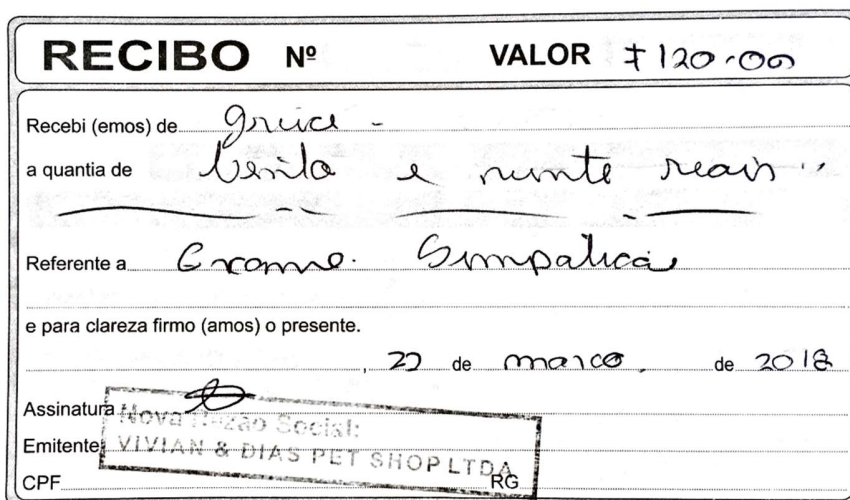 RECIBO Nº VALOR $120.00
Recebi (emos) de
a quantia de Cento e vinte reais
Referente a Exame. Simpatica
e para clareza firmo (amos) o presente.
, 22 de março. de 2018
Assinatura
Nova Razão Social:
Emitente VIVIAN & DIAS PET SHOP LTDA
CPF RG